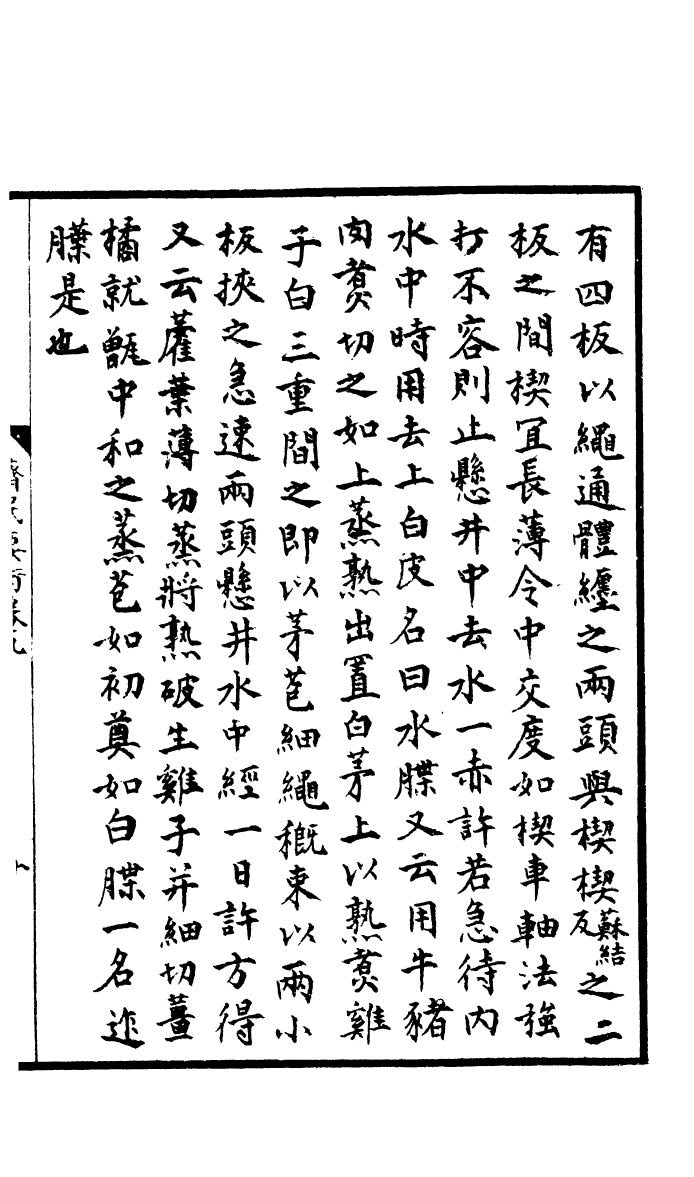 有四板以繩通體纏之兩頭與楔楔蘇結反之二
板之間楔宜長薄令中交度如楔車軸法強
打不容則止懸井中去水一赤許若急待内
水中時用去上白皮名曰水腜又云用牛豬
肉煑切之如上蒸熟出置白茅上以熟煑雞
子白三重間之即以茅苞細繩穊束以兩小
板挾之急速兩頭懸井水中經一日許方得
又云藿葉薄切蒸將熟破生雞子并細切薑
橘就甑中和之蒸苞如初奠如白腜一名迮
腜是也
齊民要術卷九